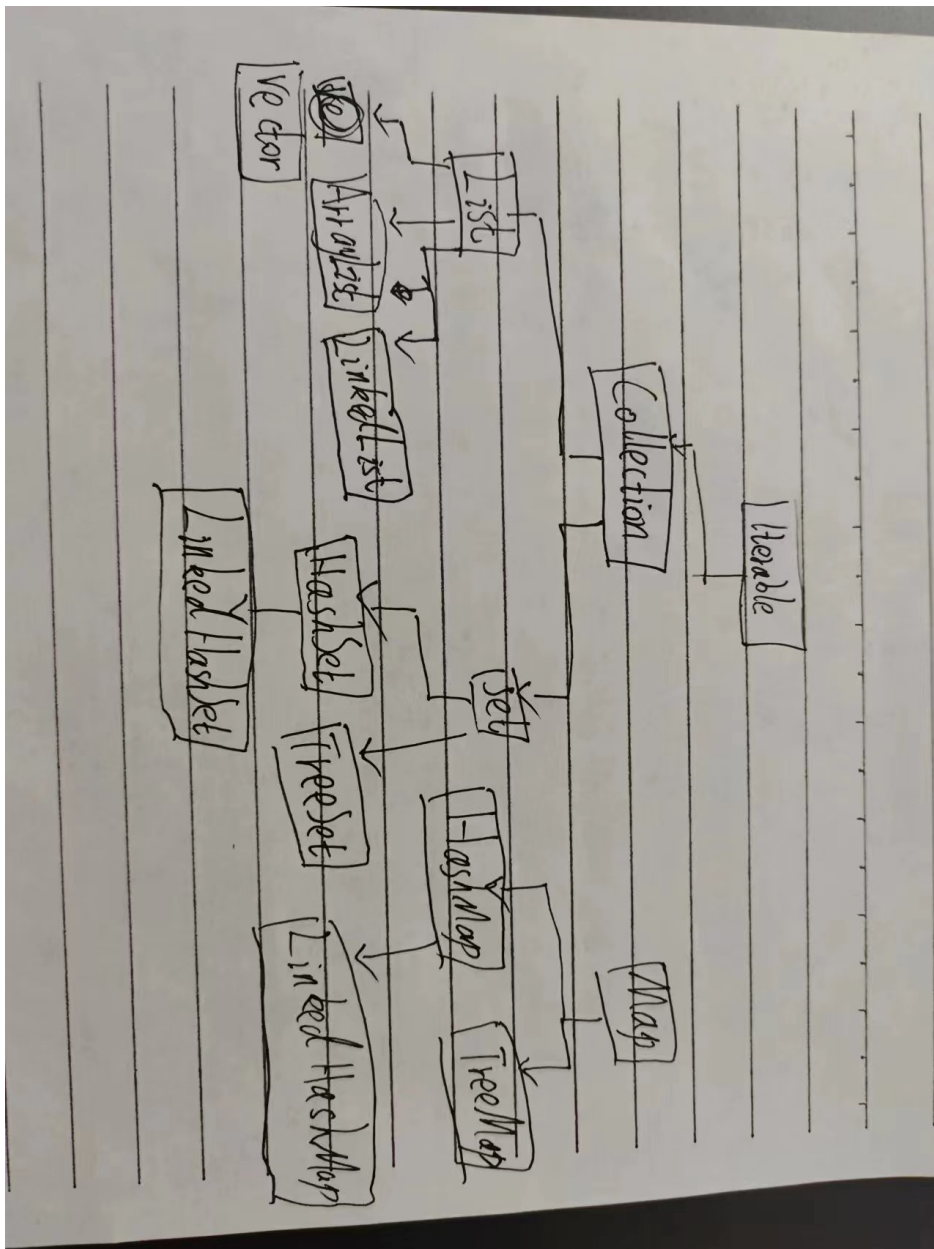 Iterable
Collection
Map
List
Set
HashMap
TreeMap
Vector
ArrayList
LinkedList
HashSet
TreeSet
LinkedHashMap
LinkedHashSet